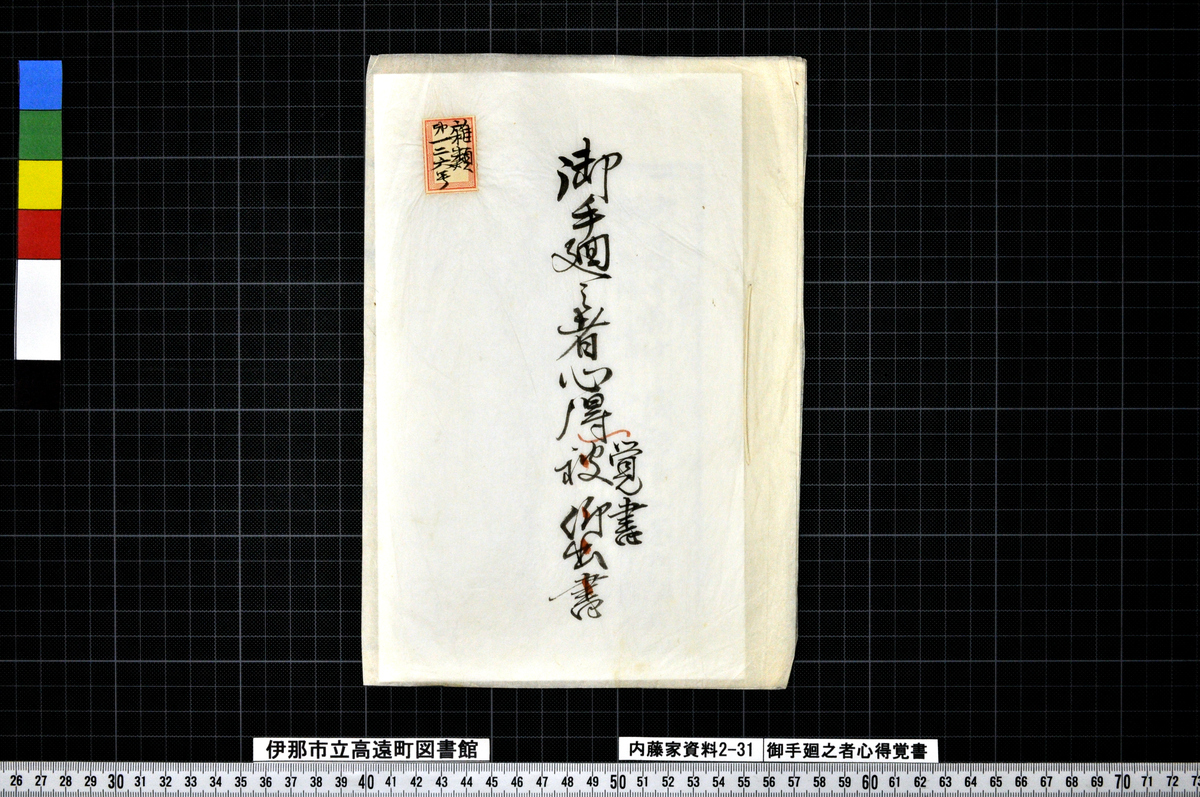 御手廻之者心得被仰出書
覚書
雑類
第一二六号
伊那市立高遠町図書館
内藤家資料2-31
御手廻之者心得覚書
26 27 28 29 30 31 32 33 34 35 36 37 38 39 40 41 42 43 44 45 46 47 48 49 50 51 52 53 54 55 56 57 58 59 60 61 62 63 64 65 66 67 68 69 70 71 72 73